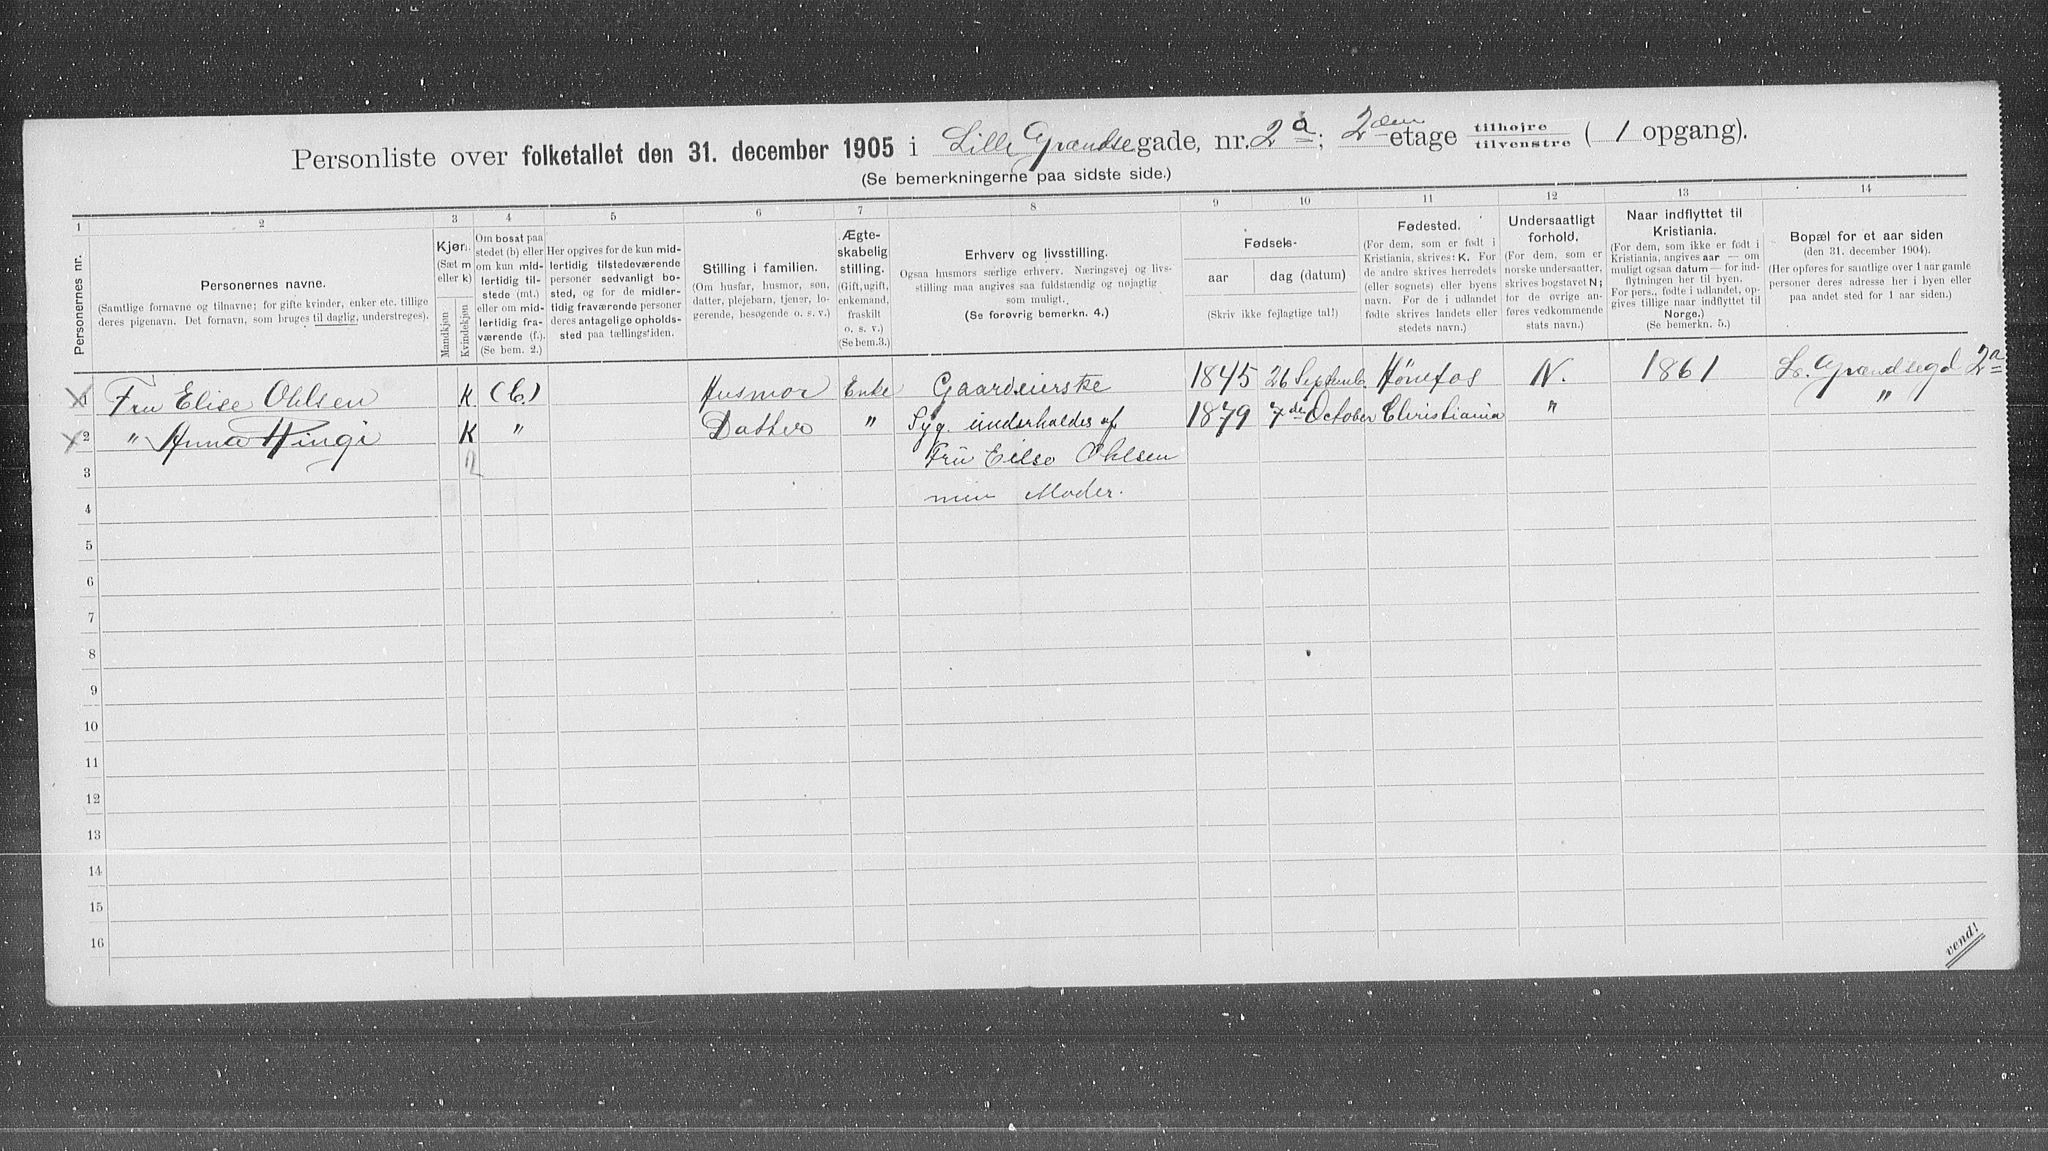 Personliste over folketallet den 31. december 1905 i Lille Grændsegade, nr. 2a; 2den etage tilhøjre tilvenstre ( 1 opgang).
(Se bemerkningerne paa sidste side.)
1 2 3 4 5 6 7 8 9 10 11 12 13 14
Personernes nr.
Personernes navne.
(Samtlige fornavne og tilnavne; for gifte kvinder, enker etc. tillige
deres pigenavn. Det fornavn, som bruges til daglig, understreges).
Kjøn.
(Sæt m
eller k)
Mandkjøn
Kvindekjøn
Om bosat paa
stedet (b) eller
om kun mid-
lertidig til-
stede (mt.)
eller om mid-
lertidig fra-
værende (f.).
(Se bem. 2.)
Her opgives for de kun mid-
lertidig tilstedeværende
personer sedvanlig bo-
sted, og for de midler-
tidig fraværende personer
deres antagelige opholds-
sted paa tællingstiden.
Stilling i familien.
(Om husfar, husmor, søn,
datter, plejebarn, tjener, lo-
gerende, besøgende o. s. v.)
Ægte-
skabelig
stilling.
(Gift, ugift,
enkemand,
fraskilt
o. s. v.)
(Se bem.3.)
Erhverv og livsstilling.
Ogsaa husmors særlige erhverv. Næringsvej og livs-
stilling maa angives saa fuldstændig og nøjagtig
som muligt.
(Se forøvrig bemerkn. 4.)
Fødsels-
aar
dag (datum)
(Skriv ikke fejlagtige tal!)
Fødested.
(For dem, som er født i
Kristiania, skrives: K. For
de andre skrives herredets
(eller sognets) eller byens
navn. For de i udlandet
fødte skrives landets eller
stedets navn.)
Undersaatligt
forhold.
(For dem, som er
norske undersaatter,
skrives bogstavet N;
for de øvrige an-
føres vedkommende
stats navn.)
Naar indflyttet til
Kristiania.
(For dem, som ikke er født i
Kristiania, angives aar — om
muligt ogsaa datum — for ind-
flytningen her til byen.
For pers., fødte i udlandet, op-
gives tillige naar indflyttet til
Norge.)
(Se bemerkn. 5.)
Bopæl for et aar siden
(den 31. december 1904).
(Her opføres for samtlige over 1 aar gamle
personer deres adresse her i byen eller
paa andet sted for 1 aar siden.)
1 Fru Elise Ohlsen K (b.) Husmor Enke Gaardeierske 1845 26 Septemb Hønefos N. 1861 L. Grændsegd 2a
2 " Anna Hingi K " Datter " Syg. underholdes af 1879 7de October Christiania " "
3 2 Fru Eilse Ohlsen
4 min Moder.
5
6
7
8
9
10
11
12
13
14
15
16
vend!